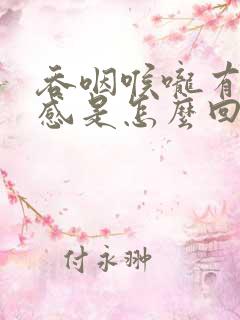 吞咽喉嚨有
感是怎麼回
付永翀